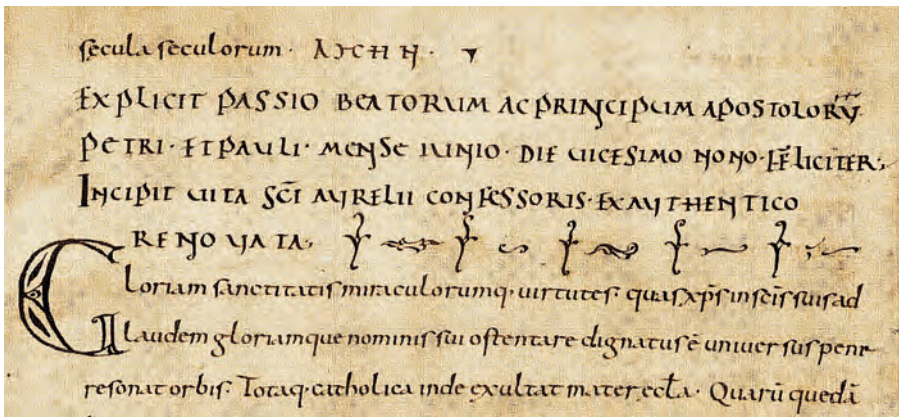 sęcula seculorum·
EXPLICIT PASSIO BEATORUM AC PRINCIPUM APOSTOLORŪ
PETRI· ET PAULI· MENSE IUNIO· DIE UICESIMO NONO· FELICITER;
INCIPIT UITA SC̄I AURELII CONFESSORIS· EX AUTHENTICO
RENOUATA;
Gloriam sanctitatis miraculorumq· uirtutes· quas xp̄s in sc̄is suis ad
laudem gloriamque nominis sui ostentare dignatus ē uniuersus pene
resonat orbis· Totaq· catholica inde ęxultat mater eccl̄a· Quarū quedā